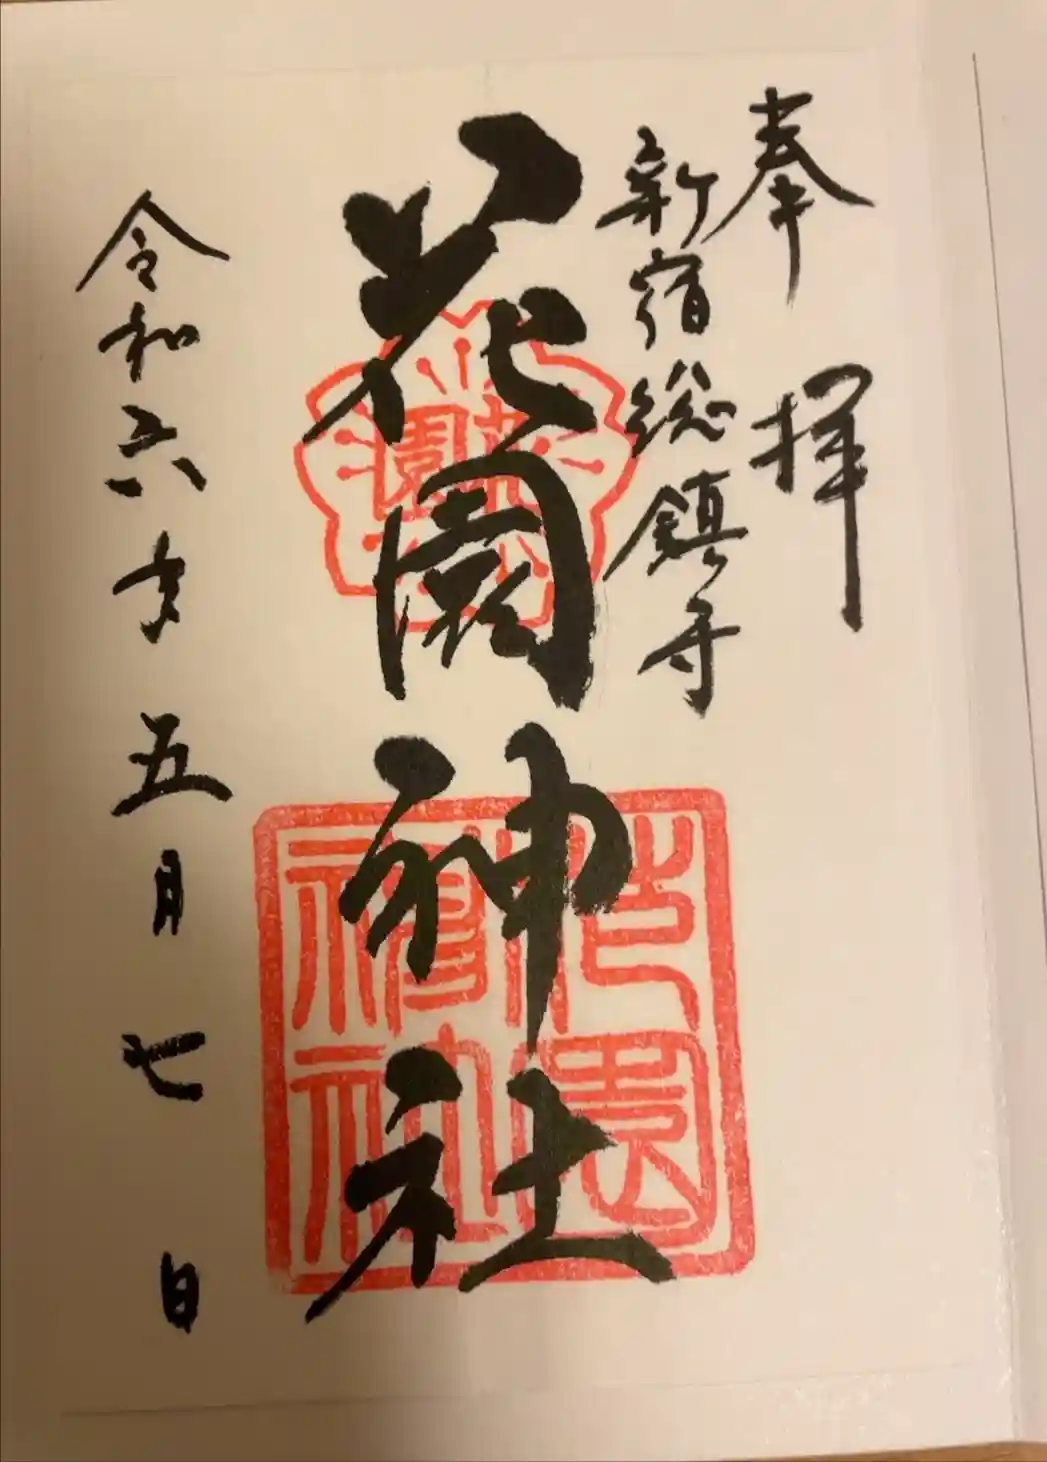 奉拝
新宿総鎮守
花園神社
花園
花園神社
令和六年五月七日